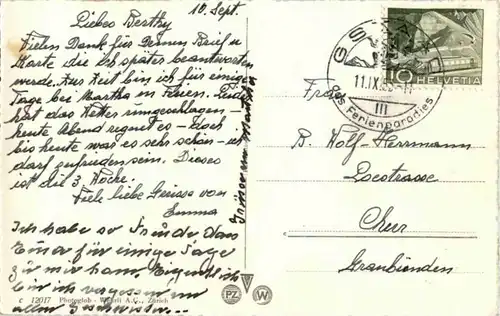 10. Sept.
Liebes Berthy
Vielen Dank für Deinen Brief u
Karte die ich später beantworten
werde. Zur Zeit bin ich für einige
Tage bei Martha in Ferien. Leider
hat das Wetter umgeschlagen –
heute Abend regnet es – doch
bis heute war es sehr schön – ich
darf zufrieden sein. Dieses
ist die 3. Woche.
Viele liebe Grüsse von
Emma
Ich habe so Freude dass
Emma für einige Tage
zu mir kam. Eigentlich
bin ich vergessen von
allen Geschwister...
Grüsse von Martha
c 12017 Photoglob - Wehrli A.G., Zürich
PZ W
GSTAAD
11.IX.
III
das Ferienparadies
10 HELVETIA
Frau
B. Wolf-Herrmann
Loestrasse
Chur
Graubünden